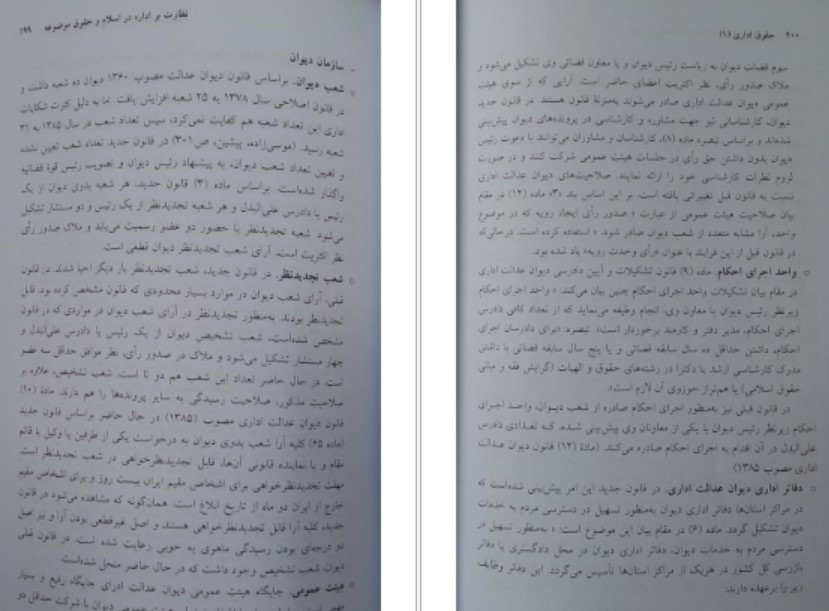 نظارت بر اداره در اسلام و حقوق موضوعه ۱۹۹
ـ سازمان دیوان
○ شعب دیوان. براساس قانون دیوان عدالت مصوب ۱۳۶۰ دیوان ده شعبه داشت و
در قانون اصلاحی سال ۱۳۷۸ به ۲۵ شعبه افزایش یافت. اما به دلیل کثرت شکایات
اداری این تعداد شعبه هم کفایت نمی‌کرد، سپس تعداد شعب در سال ۱۳۸۵ به ۳۱
شعبه رسید. (موسی‌زاده، پیشین، ص ۳۰۱) در قانون جدید تعداد شعب تعیین نشده
و تعیین تعداد شعب دیوان، به پیشنهاد رئیس دیوان و تصویب رئیس قوهٔ قضائیه
واگذار شده‌است. براساس مادهٔ (۳) قانون جدید، هر شعبه بدوی دیوان از یک
رئیس یا دادرس علی‌البدل و هر شعبه تجدیدنظر از یک رئیس و دو مستشار تشکیل
می‌شود. شعبه تجدیدنظر با حضور دو عضو رسمیت می‌یابد و ملاک صدور رأی
نظر اکثریت است. آرای شعب تجدیدنظر دیوان قطعی است.
○ شعب تجدیدنظر. در قانون جدید، شعب تجدیدنظر بار دیگر احیا شدند. در قانون
قبلی، آرای شعب دیوان در موارد بسیار محدودی که قانون مشخص کرده بود، قابل
تجدیدنظر بودند. به‌منظور تجدیدنظر در آرای شعب دیوان در مواردی که در قانون
مشخص شده‌است، شعب تشخیص دیوان از یک رئیس یا دادرس علی‌البدل و
چهار مستشار تشکیل می‌شود و ملاک در صدور رأی، نظر موافق حداقل سه عضو
است. در حال حاضر تعداد این شعب هم دو تا است. شعب تشخیص، علاوه بر
صلاحیت مذکور، صلاحیت رسیدگی به سایر پرونده‌ها را هم دارند. مادهٔ (۱۰)
قانون دیوان عدالت اداری مصوب (۱۳۸۵) در حال حاضر براساس قانون جدید
(ماده ۶۵) کلیه آرا شعب بدوی دیوان به درخواست یکی از طرفین یا وکیل یا قائم
مقام و یا نماینده قانونی آن‌ها، قابل تجدیدنظرخواهی در شعب تجدیدنظر است
مهلت تجدیدنظرخواهی برای اشخاص مقیم ایران بیست روز و برای اشخاص مقیم
خارج از ایران دو ماه از تاریخ ابلاغ است. همان‌گونه که مشاهده می‌شود در قانون
جدید، کلیه آرا قابل تجدیدنظرخواهی هستند و اصل غیرقطعی بودن آرا و نیز اصل
دو درجه‌ای بودن رسیدگی ماهوی به خوبی رعایت شده است. در قانون قبلی
دیوان، شعب تشخیص وجود داشت که در حال حاضر منحل شده‌است.
○ هیئت عمومی. جایگاه هیئت عمومی دیوان عدالت اداری جایگاه رفیع و بسیار
هیئت عمومی دیوان با شرکت حداقل دو
۲۰۰ حقوق اداری (۱)
سوم قضات دیوان به ریاست رئیس دیوان و یا معاون قضائی وی تشکیل می‌شود و
ملاک صدور رأی، نظر اکثریت اعضای حاضر است. آرایی که از سوی هیئت
عمومی دیوان عدالت اداری صادر می‌شوند به‌منزلهٔ قانون هستند. در قانون جدید
دیوان، کارشناسانی نیز جهت مشاوره و کارشناسی در پرونده‌های دیوان پیش‌بینی
شده‌اند و براساس تبصره ماده (۸)، کارشناسان و مشاوران می‌توانند با دعوت رئیس
دیوان بدون داشتن حق رأی در جلسات هیئت عمومی شرکت کنند و در صورت
لزوم نظرات کارشناسی خود را ارائه نمایند. صلاحیت‌های دیوان عدالت اداری
نسبت به قانون قبل تغییراتی یافته است. بر این اساس بند «۳» ماده (۱۲) در مقام
بیان صلاحیت هیئت عمومی از عبارت « صدور رأی ایجاد رویه که در موضوع
واحد، آرا مشابه متعدد از شعب دیوان صادر شود. » استفاده کرده است. درحالی‌که
در قانون قبل از این فرایند با عنوان «رأی وحدت رویه» یاد شده بود.
○ واحد اجرای احکام. ماده (۹) قانون تشکیلات و آیین دادرسی دیوان عدالت اداری
در مقام بیان تشکیلات واحد اجرای احکام چنین بیان می‌کند: « واحد اجرای احکام
زیرنظر رئیس دیوان یا معاون وی، انجام وظیفه می‌نماید که از تعداد کافی دادرس
اجرای احکام، مدیر دفتر و کارمند برخوردار است». تبصره: «برای دادرسان اجرای
احکام، داشتن حداقل ده سال سابقه قضائی و یا پنج سال سابقه قضائی با داشتن
مدرک کارشناسی ارشد یا دکترا در رشته‌های حقوق و الهیات (گرایش فقه و مبانی
حقوق اسلامی) یا هم‌تراز حوزوی آن لازم است».
در قانون قبلی نیز به‌منظور اجرای احکام صادره از شعب دیوان، واحد اجرای
احکام زیرنظر رئیس دیوان یا یکی از معاونان وی پیش‌بینی شده، که تعدادی دادرس
علی‌البدل در آن اقدام به اجرای احکام صادره می‌کنند. (مادهٔ (۱۲) قانون دیوان عدالت
اداری مصوب ۱۳۸۵)
○ دفاتر اداری دیوان عدالت اداری. در قانون جدید این امر پیش‌بینی شده‌است که
در مراکز استان‌ها دفاتر اداری دیوان به‌منظور تسهیل در دسترسی مردم به خدمات
دیوان تشکیل گردد. ماده (۶) در مقام بیان این موضوع است: « به‌منظور تسهیل در
دسترسی مردم به خدمات دیوان، دفاتر اداری دیوان در محل دادگستری یا دفاتر
بازرسی کل کشور در هریک از مراکز استان‌ها تأسیس می‌گردد. این دفاتر وظایف
زیر را برعهده دارند: